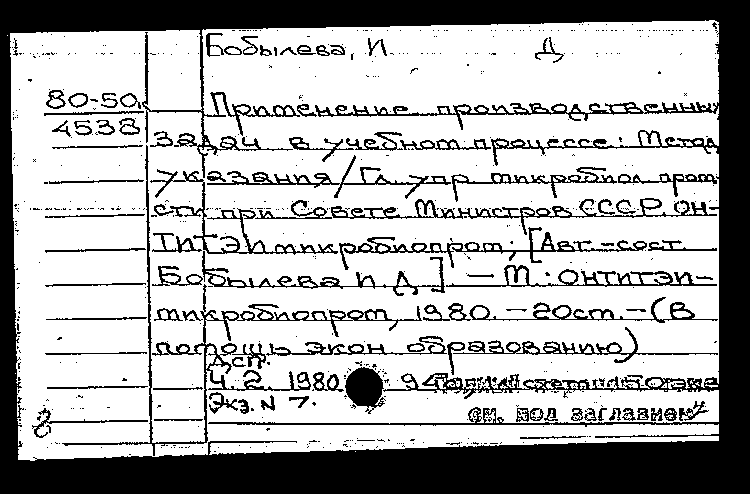 Бобылева, И. Д
80-50
4538
Применение производственных
задач в учебном процессе: Метод
указания/Гл упр микробиол пром-
сти при Совете Министров СССР. ОН-
ТИТЭИмикробиопром; [Авт.-сост
Бобылева И. Д.] — М.: ОНТИТЭИ-
микробиопром, 1980. - 20см. - (В
помощь экон образованию)
Ч. 2. 1980 94
Экз. N 7.
см. под заглавием